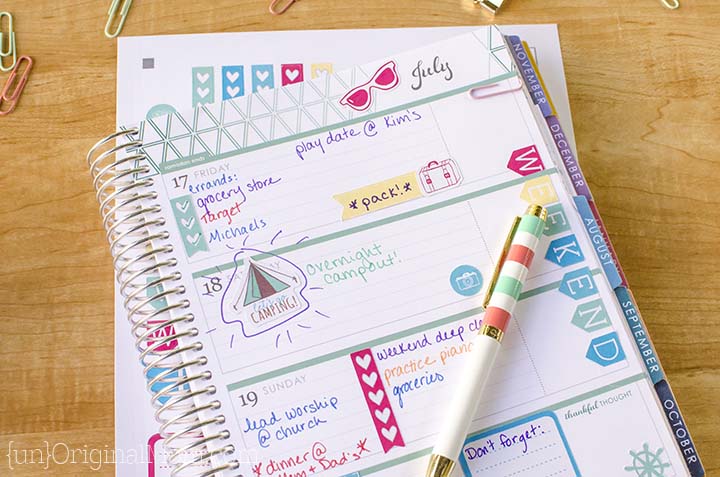 July
NOVEMBER
DECEMBER
play date @ Kim's
17 FRIDAY
errands:
grocery store
Target
Michaels
*pack!*
WEEKEND
18
Overnight
campout!
CAMPING!
AUGUST
SEPTEMBER
OCTOBER
19 SUNDAY
lead worship
@ church
*dinner @
Dad's*
weekend deep
practice piano
groceries
thankful THOUGHT
Don't forget:
{un}Original